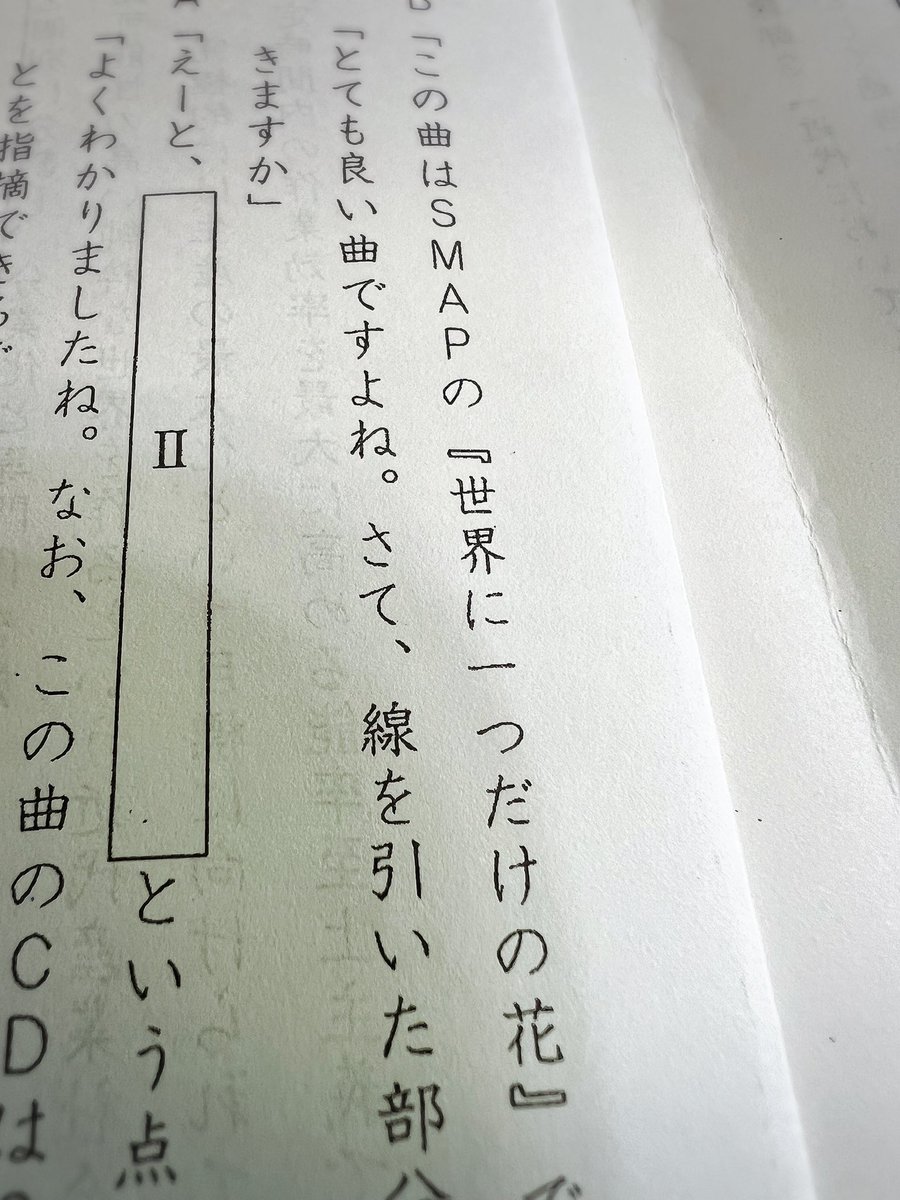 「この曲はSMAPの『世界に一つだけの花』で
「とても良い曲ですよね。さて、線を引いた部分
きますか」
「えーと、 Ⅱ という点
「よくわかりましたね。なお、この曲のCDは
とを指摘でき